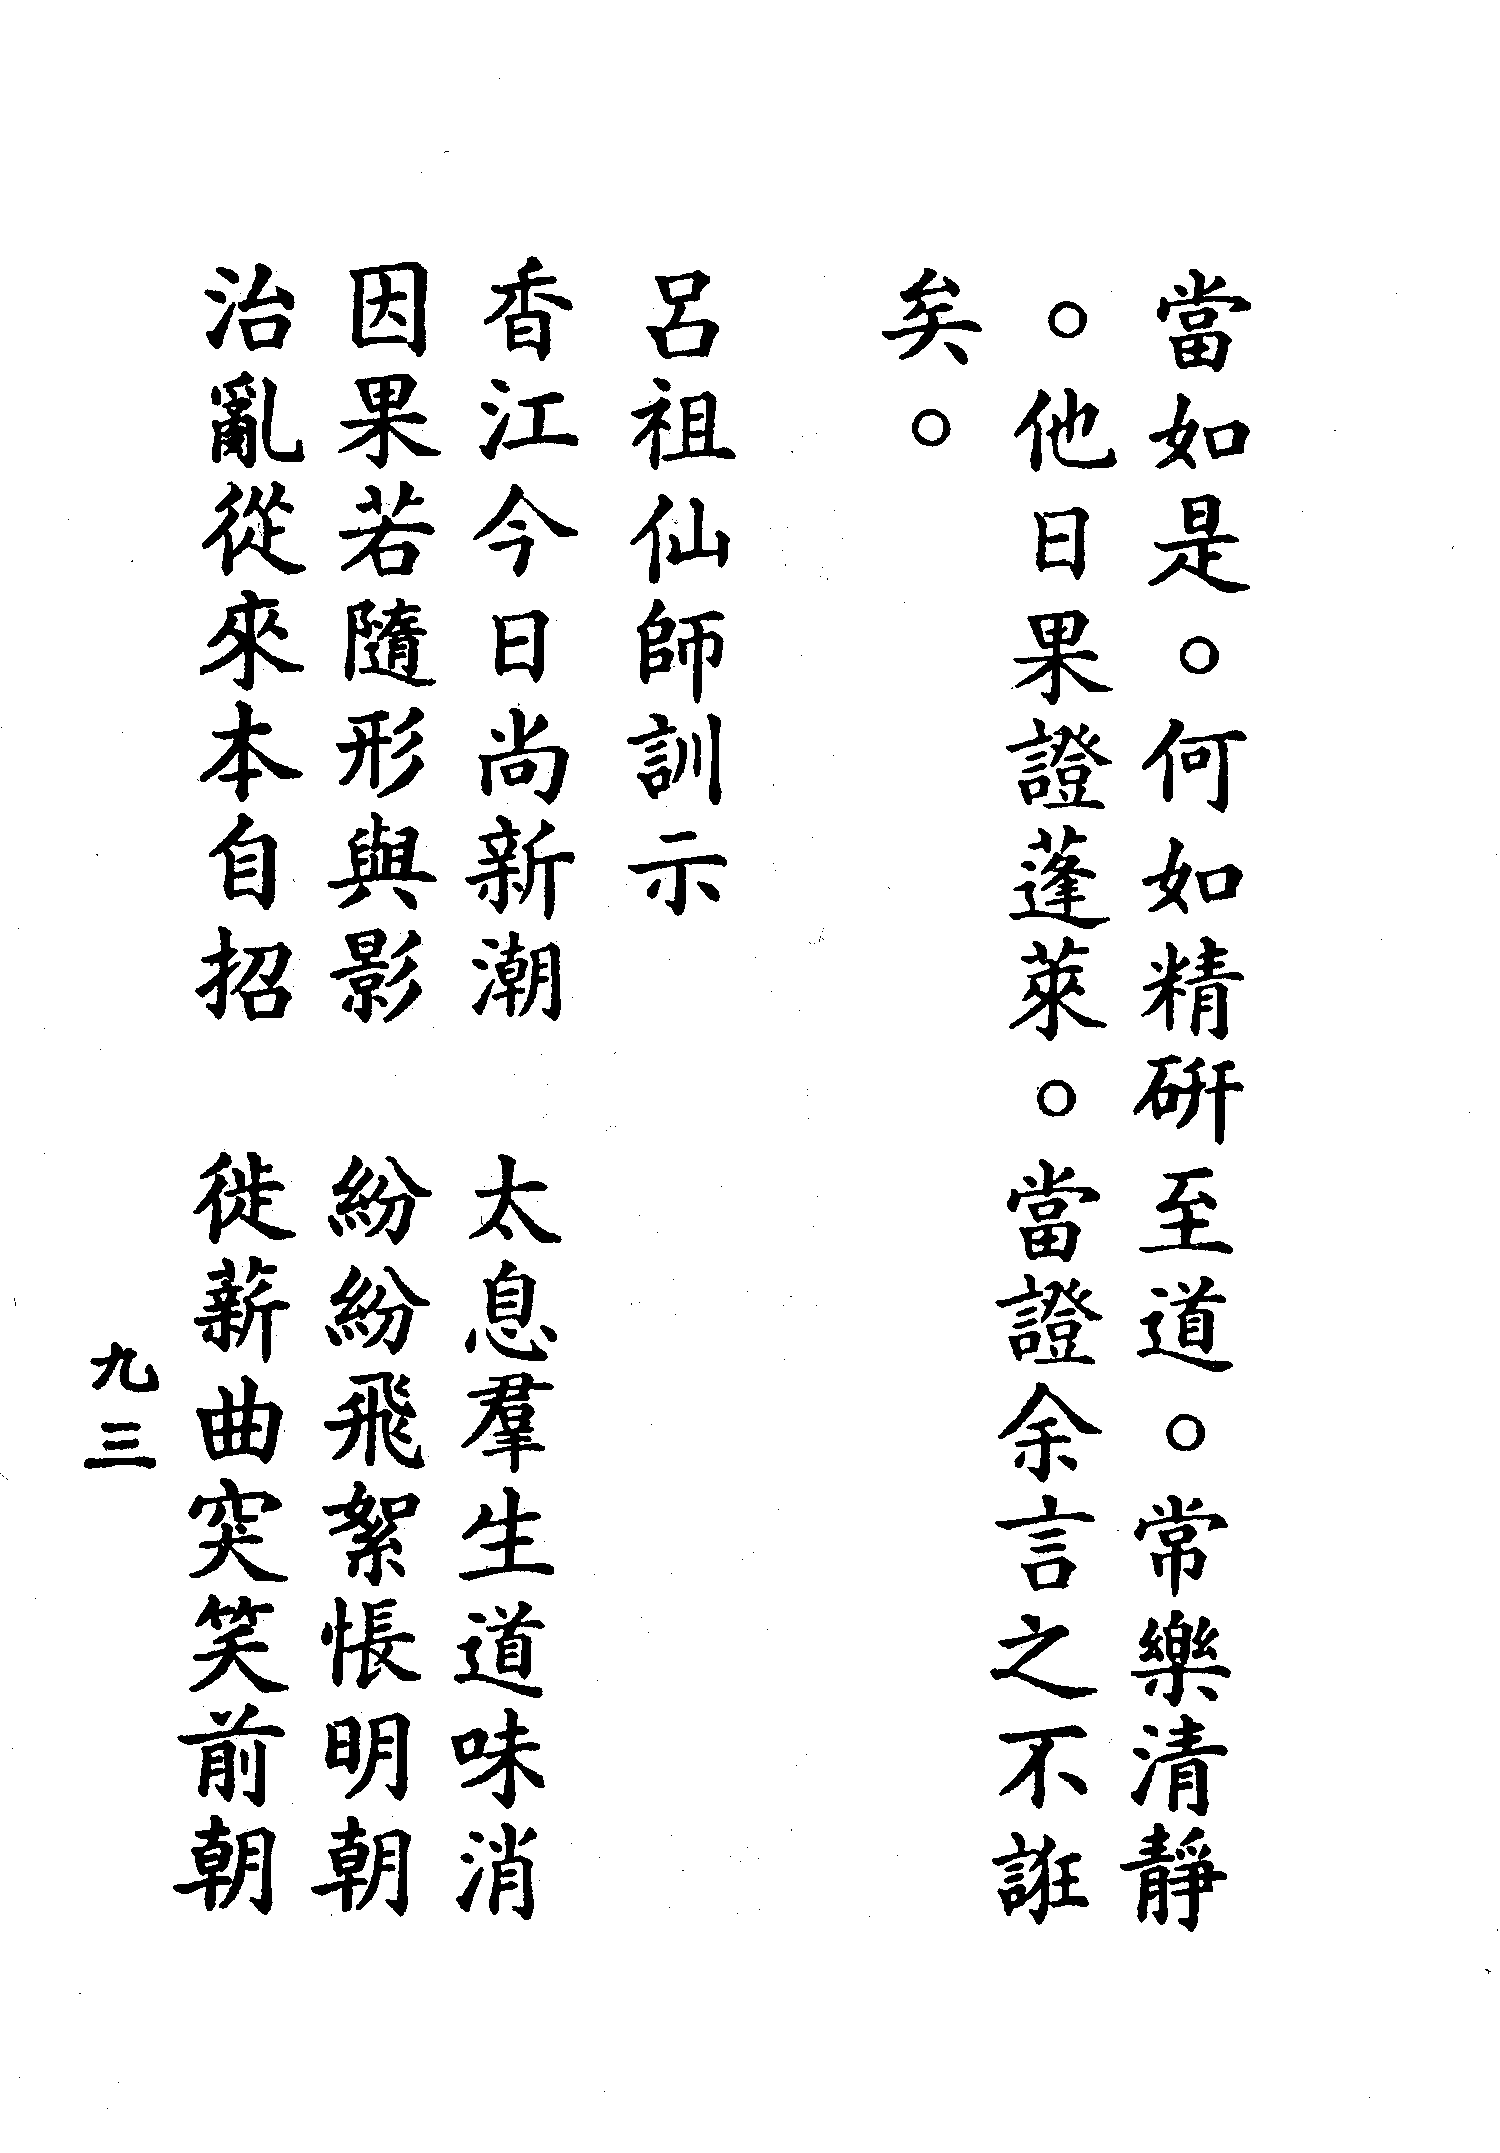 當如是。何如精研至道。常樂清靜
。他日果證蓬萊。當證余言之不誑
矣。
呂祖仙師訓示
香江今日尚新潮　太息羣生道味消
因果若隨形與影　紛紛飛絮悵明朝
治亂從來本自招　徙薪曲突笑前朝
九三